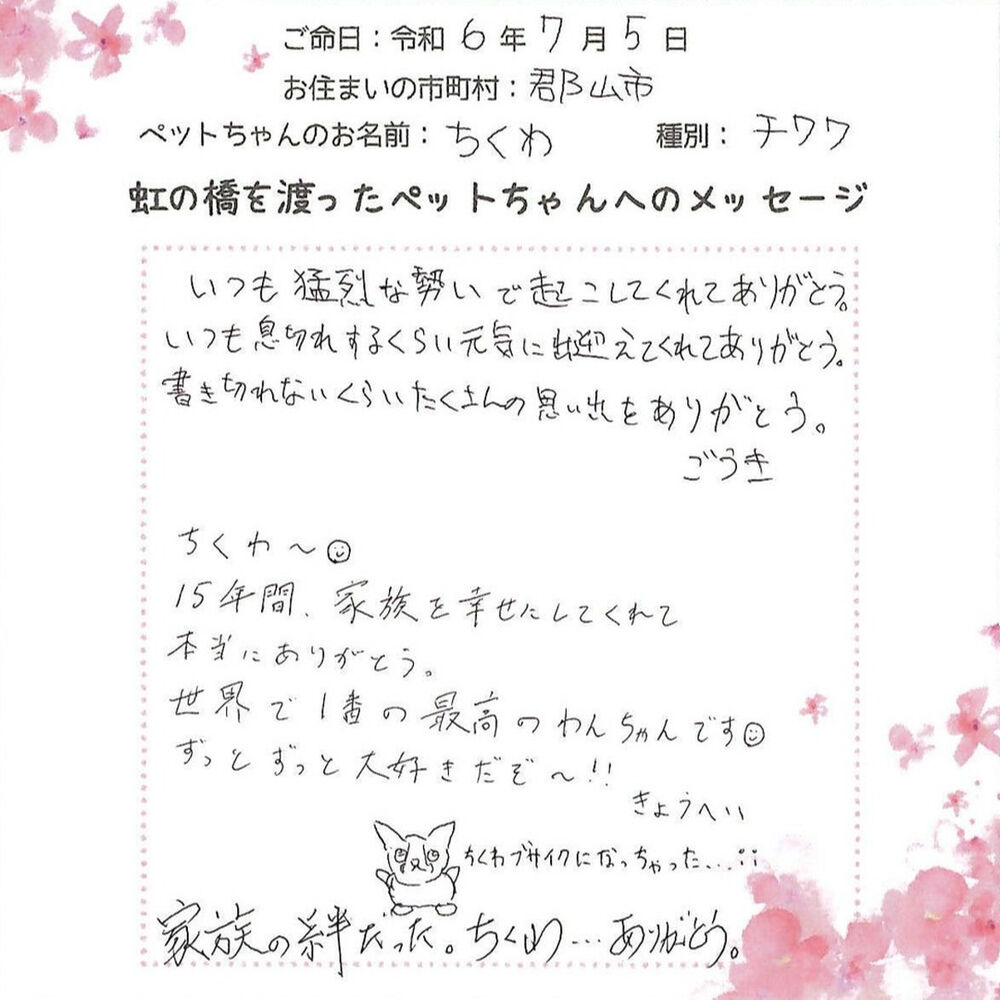 ご命日：令和 6 年 7 月 5 日
お住まいの市町村：郡山市
ペットちゃんのお名前：ちくわ 種別：チワワ
虹の橋を渡ったペットちゃんへのメッセージ
いつも猛烈な勢いで起こしてくれてありがとう。
いつも息切れするくらい元気に出迎えてくれてありがとう。
書き切れないくらいたくさんの思い出をありがとう。
ごうき
ちくわ〜☺
15年間、家族を幸せにしてくれて
本当にありがとう。
世界で1番の最高のわんちゃんです☺
ずっとずっと大好きだぞ〜!!
きょうへい
ちくわブサイクになっちゃった...;;
家族の絆だった。ちくわ…ありがとう。